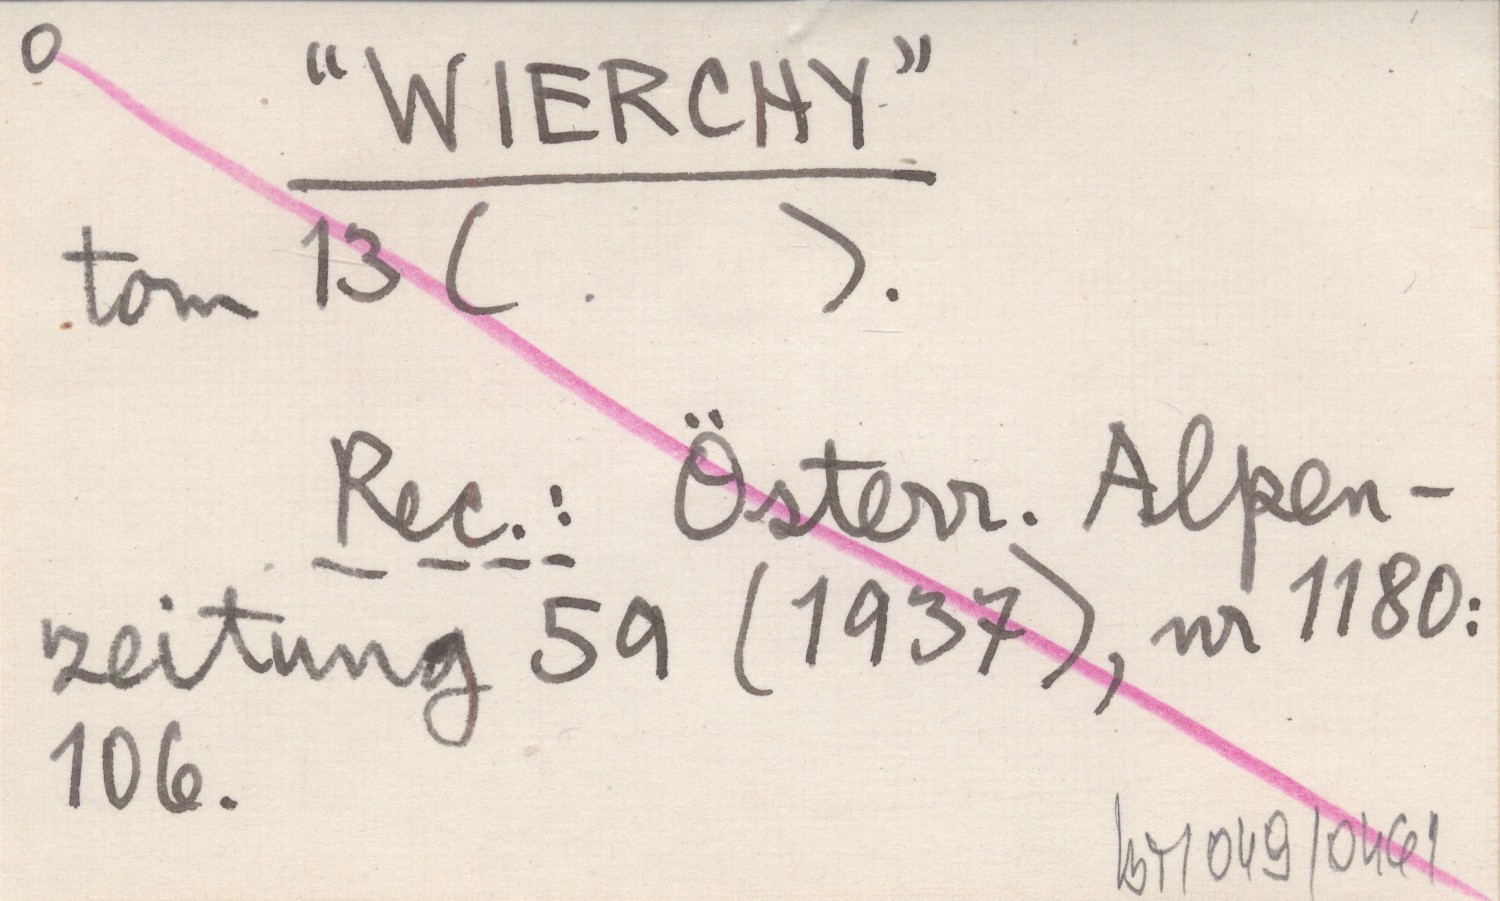 O
“WIERCHY”
tom 13 ( ).
Rec.: Österr. Alpen-
zeitung 59 (1937), nr 1180:
106.
049/0461